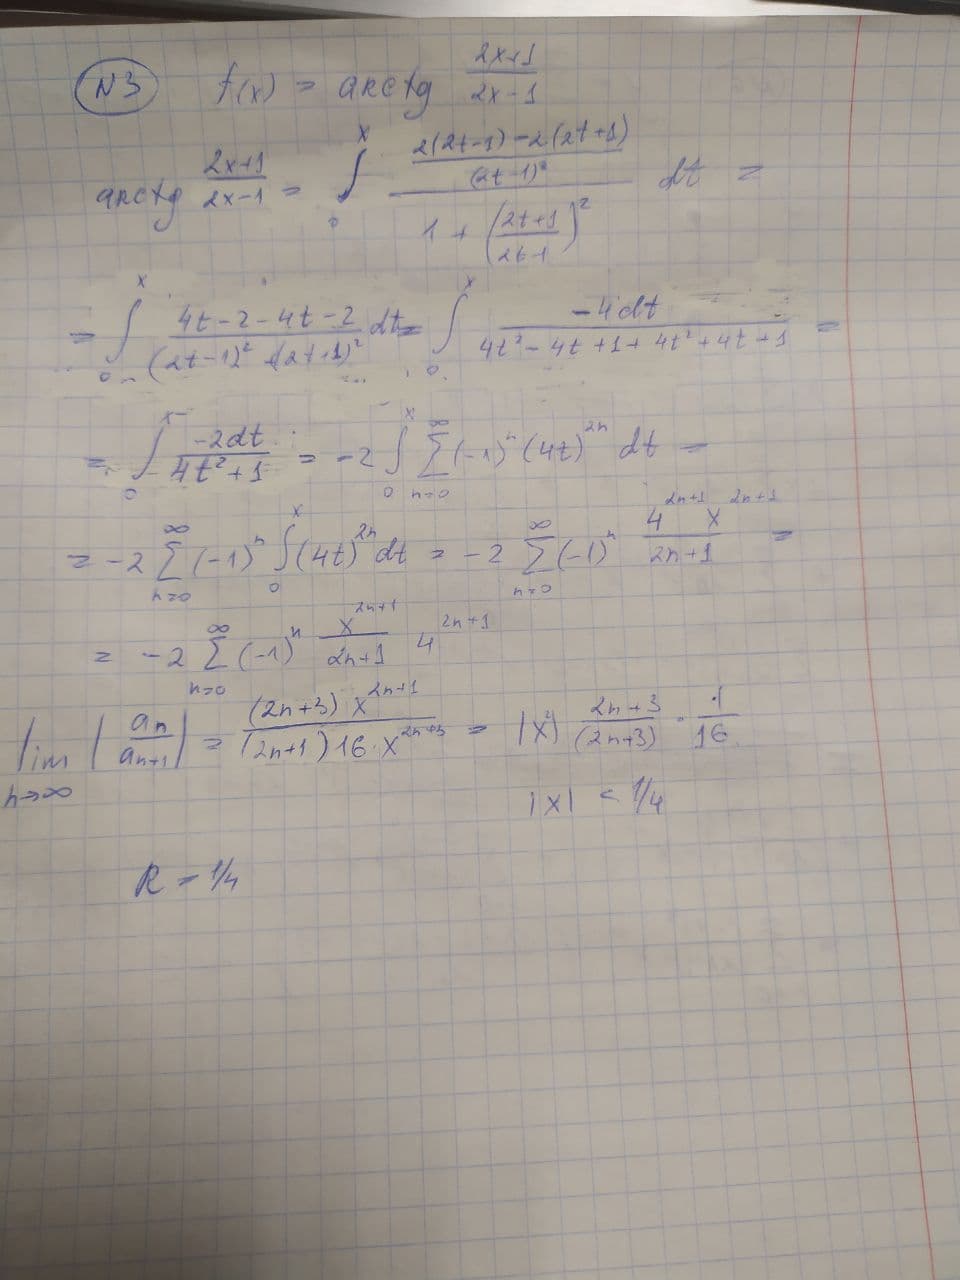 N3 f(x) = arctg (2x+1)/(2x-1)
arctg (2x+1)/(2x-1) = ∫₀ˣ ((2(2t-1)-2(2t+1))/(2t-1)²)/(1+((2t+1)/(2t-1))²) dt =
= ∫₀ˣ (4t-2-4t-2)/((2t-1)²+(2t+1)²) dt = ∫₀ˣ (-4dt)/(4t²-4t+1+4t²+4t+1) =
= ∫₀ˣ (-2dt)/(4t²+1) = -2 ∫₀ˣ ∑_{n=0}^∞ (-1)ⁿ (4t)²ⁿ dt =
= -2 ∑_{n=0}^∞ (-1)ⁿ ∫₀ˣ (4t)²ⁿ dt = -2 ∑_{n=0}^∞ (-1)ⁿ (4²ⁿ⁺¹ x²ⁿ⁺¹)/(2n+1) =
= -2 ∑_{n=0}^∞ (-1)ⁿ x²ⁿ⁺¹/(2n+1) 4²ⁿ⁺¹
lim_{n→∞} |aₙ/aₙ₊₁| = ((2n+3) x²ⁿ⁺¹)/((2n+1) 16·x²ⁿ⁺³) = |x²| (2n+3)/(2n+3) · 1/16
|x| < 1/4
R = 1/4